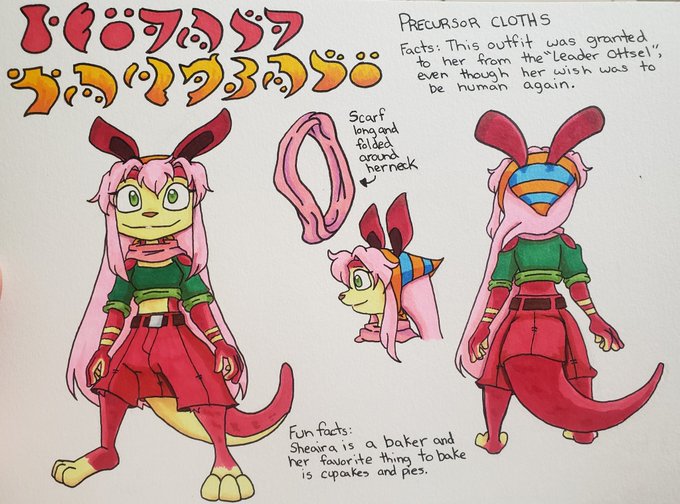 PRECURSOR CLOTHS
Facts: This outfit was granted
to her from the "Leader Ottsel",
even though her wish was to
be human again.
Scarf
long and
folded
around
her neck
Fun facts:
Sheaira is a baker and
her favorite thing to bake
is cupcakes and pies.